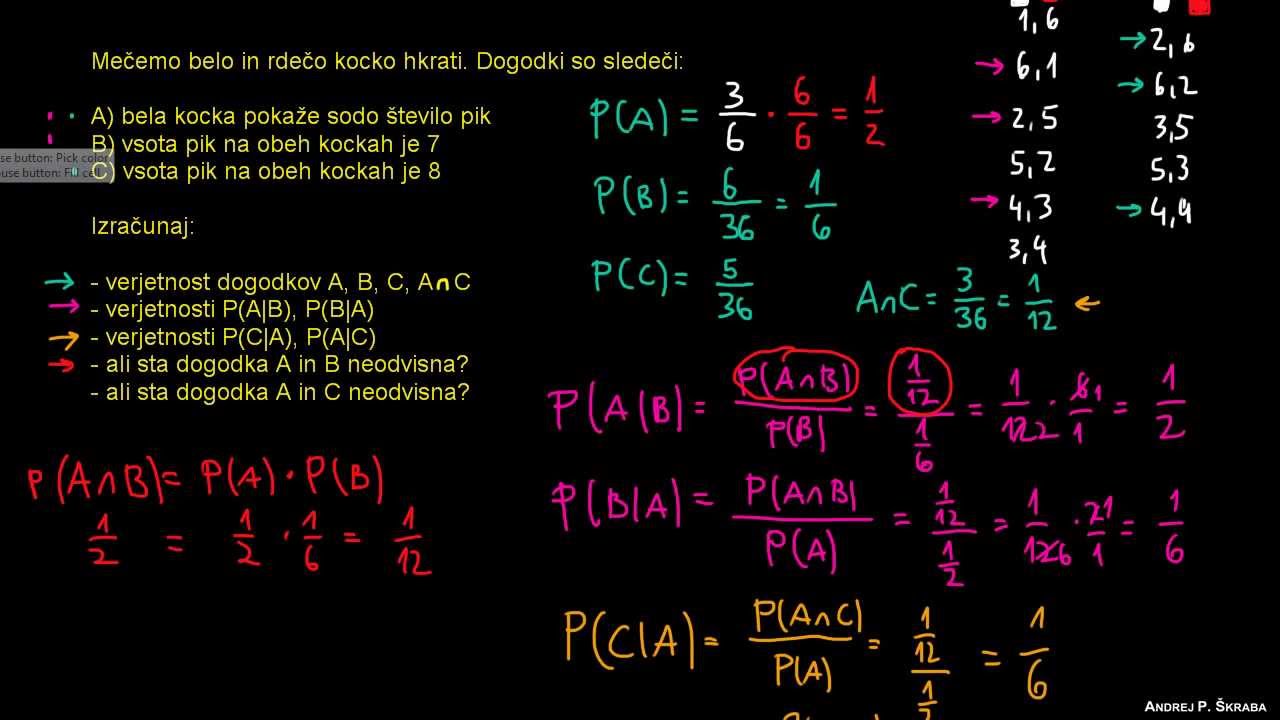 Mečemo belo in rdečo kocko hkrati. Dogodki so sledeči:
A) bela kocka pokaže sodo število pik
B) vsota pik na obeh kockah je 7
C) vsota pik na obeh kockah je 8
use button: Pick color
ouse button: Fill cel
Izračunaj:
- verjetnost dogodkov A, B, C, A∩C
- verjetnosti P(A|B), P(B|A)
- verjetnosti P(C|A), P(A|C)
- ali sta dogodka A in B neodvisna?
- ali sta dogodka A in C neodvisna?
P(A∩B) = P(A) · P(B)
1/2 = 1/2 · 1/6 = 1/12
P(A) = 3/6 · 6/6 = 1/2
P(B) = 6/36 = 1/6
P(C) = 5/36
1,6
→ 6,1
→ 2,5
5,2
→ 4,3
3,4
→ 2,6
→ 6,2
3,5
5,3
→ 4,4
A∩C = 3/36 = 1/12 ←
P(A|B) = P(A∩B)/P(B) = 1/12 / 1/6 = 1/12 2 · 6 1/1 = 1/2
P(B|A) = P(A∩B)/P(A) = 1/12 / 1/2 = 1/12 6 · 2 1/1 = 1/6
P(C|A) = P(A∩C)/P(A) = 1/12 / 1/2 = 1/6
ANDREJ P. ŠKRABA